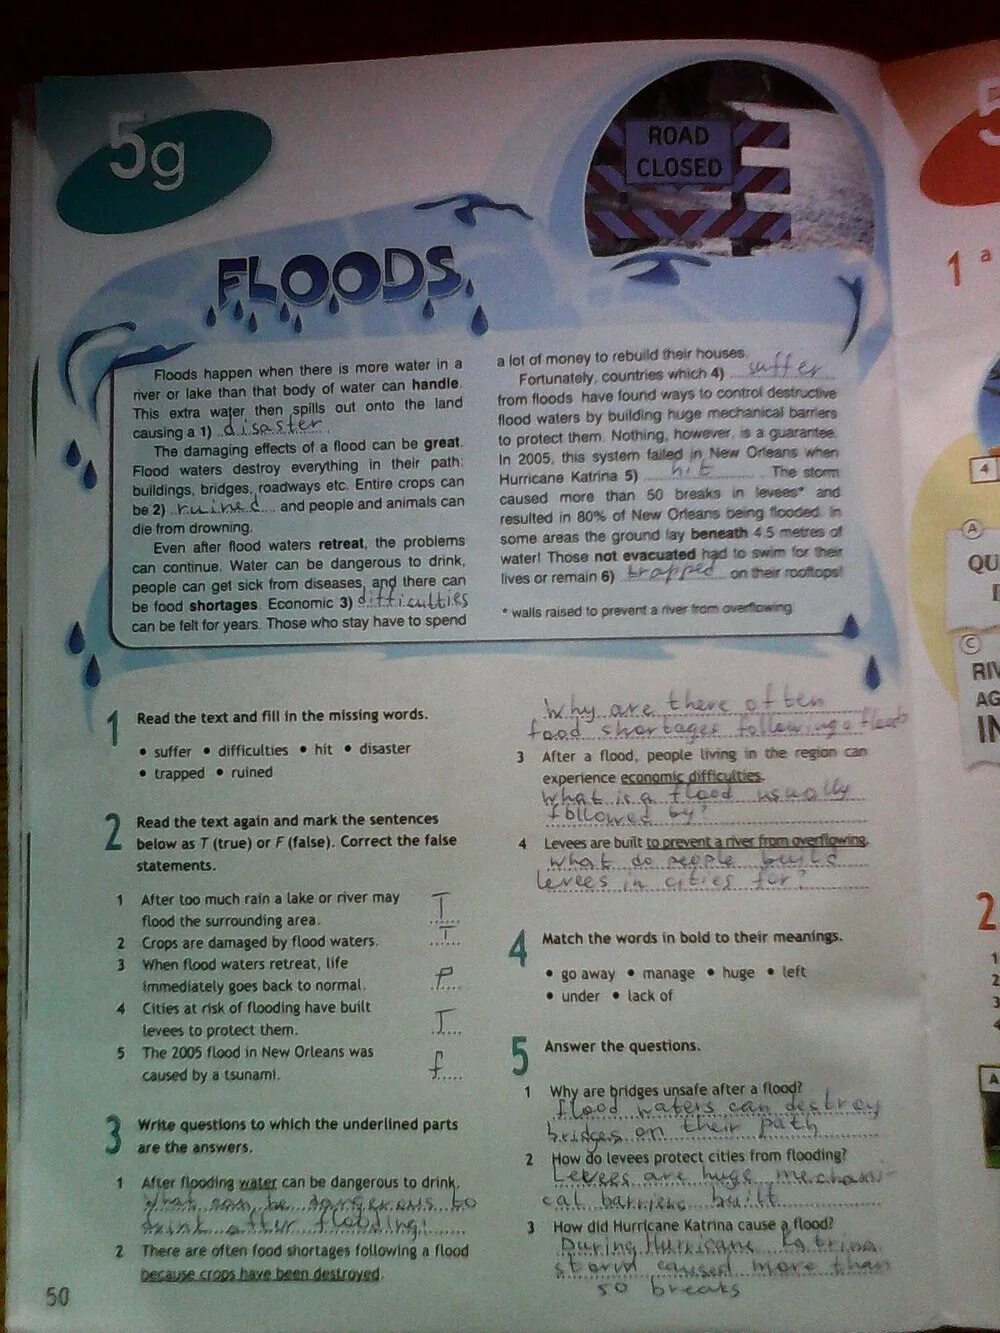 5g
ROAD
CLOSED
FLOODS
Floods happen when there is more water in a
river or lake than that body of water can handle.
This extra water then spills out onto the land
causing a 1) disaster.
The damaging effects of a flood can be great.
Flood waters destroy everything in their path:
buildings, bridges, roadways etc. Entire crops can
be 2) ruined and people and animals can
die from drowning.
Even after flood waters retreat, the problems
can continue. Water can be dangerous to drink,
people can get sick from diseases, and there can
be food shortages. Economic 3) difficulties
can be felt for years. Those who stay have to spend
a lot of money to rebuild their houses.
Fortunately, countries which 4) suffer
from floods have found ways to control destructive
flood waters by building huge mechanical barriers
to protect them. Nothing, however, is a guarantee.
In 2005, this system failed in New Orleans when
Hurricane Katrina 5) hit. The storm
caused more than 50 breaks in levees* and
resulted in 80% of New Orleans being flooded. In
some areas the ground lay beneath 4.5 metres of
water! Those not evacuated had to swim for their
lives or remain 6) trapped on their rooftops!
* walls raised to prevent a river from overflowing
1 Read the text and fill in the missing words.
• suffer • difficulties • hit • disaster
• trapped • ruined
2 Read the text again and mark the sentences
below as T (true) or F (false). Correct the false
statements.
1 After too much rain a lake or river may
flood the surrounding area. T
2 Crops are damaged by flood waters. T
3 When flood waters retreat, life
immediately goes back to normal. F
4 Cities at risk of flooding have built
levees to protect them. T
5 The 2005 flood in New Orleans was
caused by a tsunami. f
3 Write questions to which the underlined parts
are the answers.
1 After flooding water can be dangerous to drink.
What can be dangerous to
drink after flooding?
2 There are often food shortages following a flood
because crops have been destroyed.
Why are there often
food shortages following a flood
3 After a flood, people living in the region can
experience economic difficulties.
What is a flood usually
followed by?
4 Levees are built to prevent a river from overflowing.
What do people build
levees in cities for?
4 Match the words in bold to their meanings.
• go away • manage • huge • left
• under • lack of
5 Answer the questions.
1 Why are bridges unsafe after a flood?
Flood waters can destroy
bridges on their path
2 How do levees protect cities from flooding?
Levees are huge mechani-
cal barriers built
3 How did Hurricane Katrina cause a flood?
During Hurricane Katrina
storm caused more than
50 breaks
50
5
1 a
4
A
QU
C
RIV
AG
IN
2
1
2
3
4
A